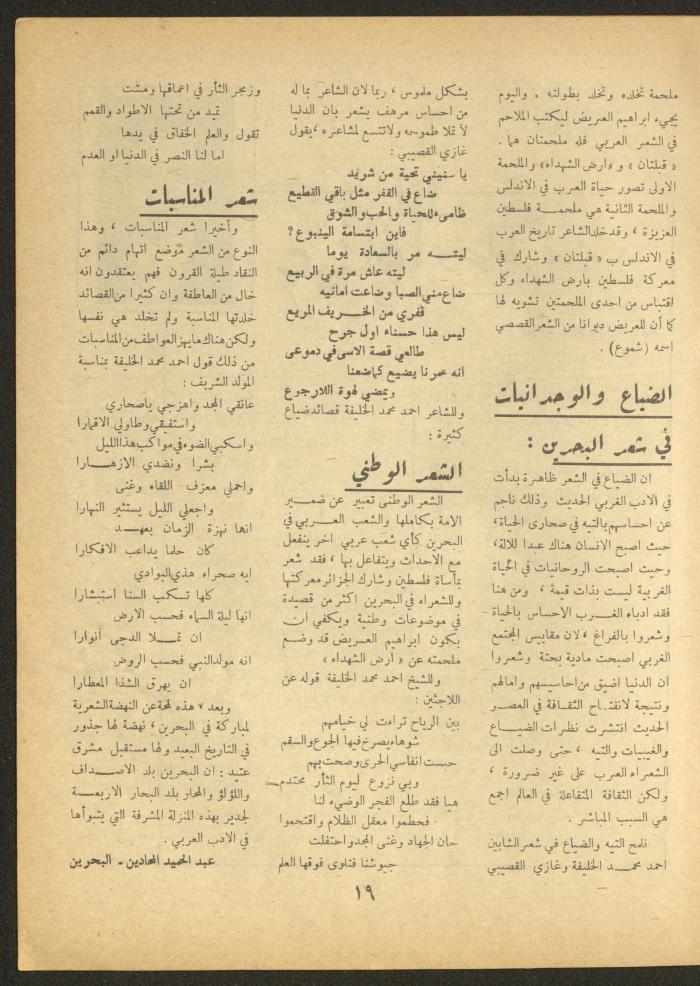 ملحمة تخلده وتخلد بطولته . واليوم
يجيء ابراهيم العريض ليكتب الملاحم
في الشعر العربي فله ملحمتان هما .
« قبلتان » و «ارض الشهداء» والملحمة
الاولى تصور حياة العرب في الاندلس
والملحمة الثانية هي ملحمـــة فلسطين
العزيزة ، وقد خلد الشاعر تاريخ العرب
في الاندلس ب « قبلتان » وشارك في
معركة فلسطين بارض الشهداء وكل
اقتباس من احدى الملحمتين تشويه لها
كما أن للعريض ديوانا من الشعر القصصي
اسمه (شموع) .
الضياع والوجدانيات
في شعر البحرين :
ان الضياع في الشعر ظاهرة بدأت
في الادب الغربي الحديث وذلك ناجم
عن احساسهم بالتيه في صحارى الحياة،
حيث اصبح الانسان هناك عبدا للآلة،
وحيث اصبحت الروحانيات في الحياة
الغربية ليست بذات قيمة ، ومن هنا
فقد ادباء الغــرب الاحساس بالحياة
وشعروا بالفراغ ، لان مقاييس المجتمع
الغربي اصبحت مادية بحتة وشعروا
ان الدنيا اضيق من احاسيسهم وامالهم
ونتيجة لانفتـاح الثقـافة في العصــر
الحديث انتشرت نظرات الضيــاع
والغيبيات والتيه ، حتى وصلت الى
الشعراء العرب على غير ضرورة ،
ولكن الثقافة المتفاعلة في العالم اجمع
هي السبب المباشر .
نلمح التيه والضياع في شعر الشابين
احمد محمــد الخليفة وغازي القصيبي
بشكل ملموس ، ربما لان الشاعر بما له
من احساس مرهف يشعر بان الدنيا
لا تملا طموحه ولا تتسع لمشاعره ، يقول
غازي القصيبي :
يا سنيني تحية من شريد
ضاع في القفر مثل باقي القطيع
ظامىء للحياة والحب والشوق
فاين ابتسامة الينبوع ؟
ليتــه مر بالسعادة يوما
ليته عاش مرة في الربيع
ضاع مني الصبا وضاعت امانيه
قفري من الخــريف المريع
ليس هذا حسناء اول جرح
طالعي قصة الاسى في دموعى
انه عمرنا يضيع كما ضعنا
ويمضي لهوة اللارجوع
وللشاعر احمد محمد الخليفة قصائد ضياع
كثيرة :
الشعر الوطني
الشعر الوطنى تعبير عن ضمــير
الامة بكاملها والشعب العــربي في
البحرين كأي شعب عربي اخر ينفعل
مع الاحداث ويتفاعل بها ، فقد شعر
بمأساة فلسطين وشارك الجزائر معركتها
وللشعراء في البحرين اكثر من قصيدة
في موضوعات وطنية ويكفي ان
يكون ابراهيم العــريض قد وضــع
ملحمته عن « ارض الشهداء »
وللشيخ احمد محمد الخليفة قوله عن
اللاجئين :
بين الرياح تراءت لي خيامهم
شوهاء يصرع فيها الجوع والسقم
حبست انفاسي الحرى وصحت بهم
وبي نزوع ليوم الثأر محتدم
هيا فقد طلع الفجر الوضيء لنا
فحطموا معقل الظلام واقتحموا
حان الجهاد وغنى المجد واحتفلت
جيوشنا فتلوى فوقها العلم
وزمجر الثأر في اعماقها ومشت
تميد من تحتها الاطواد والقمم
تقول والعلم الخفاق في يدها
اما لنا النصر في الدنيا او العدم
شعر المناسبات
وأخيرا شعر المناسبات ، وهذا
النوع من الشعر موضع اتهام دائم من
النقاد طيلة القرون فهم يعتقدون انه
خال من العاطفة وان كثيرا من القصائد
خلدتها المناسبة ولم تخلد هي نفسها
ولكن هناك ما يهز العواطف من المناسبات
من ذلك قول احمد محمد الخليفة بمناسبة
المولد الشريف :
عانقي المجد واهزجي ياصحاري
واستفيقي وطاولي الاقمارا
واسكبي الضوء في مواكب هذا الليل
بشرا ونضدي الازهــارا
واحملي معزف اللقاء وغنى
واجعلي الليل يستثير النهارا
انها نهزة الزمان بعهــد
كان حلما يداعب الافكارا
ايه صحراء هذي البوادي
كلها تسكب السنا استبشارا
انها ليلة السماء فحسب الارض
ان تمــلا الدجى أنوارا
انه مولد النبي فحسب الروض
ان يهرق الشذا المعطارا
وبعد ، هذه لمحة عن النهضة الشعرية
لمباركة في البحرين ، نهضة لها جذور
في التاريخ البعيد ولها مستقبل مشرق
عتيد : ان البحرين بلد الاصــداف
واللؤلؤ والمحار بلد البحار الاربعــة
لجدير بهذه المنزلة المشرفة التي يتبوأها
في الادب العربي .
عبد الحميد المحادين ــ البحرين
١٩